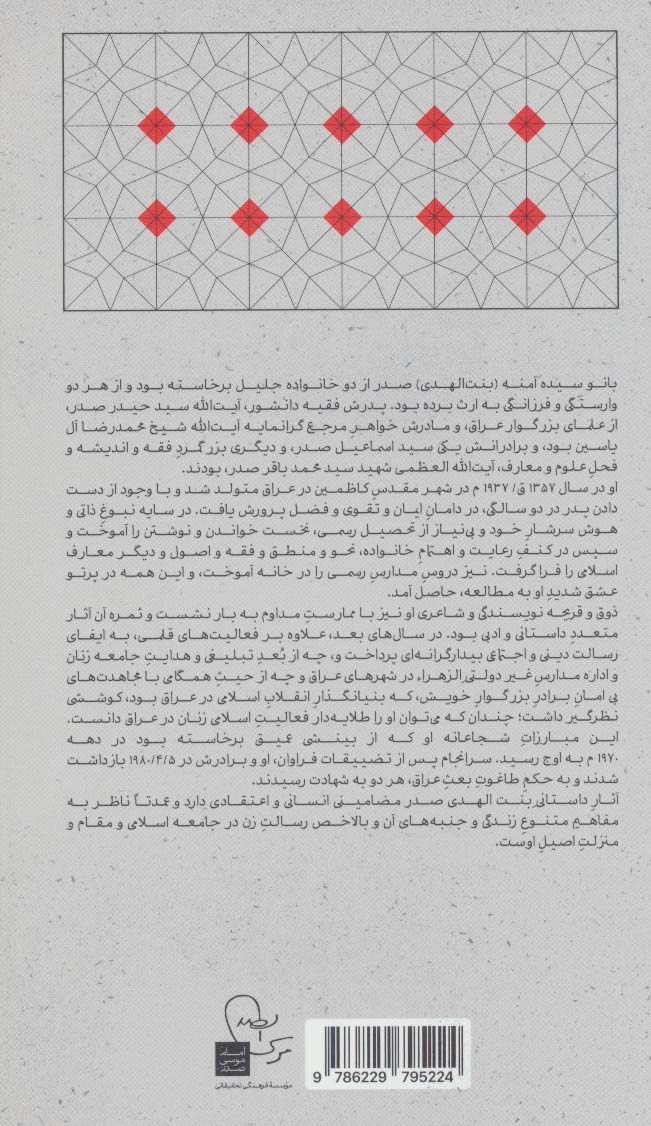 بانو سیده آمنه (بنت‌الهدی) صدر از دو خانواده جلیل برخاسته بود و از هر دو
وارستگی و فرزانگی به ارث برده بود. پدرش فقیه دانشور، آیت‌الله سید حیدر صدر،
از علمای بزرگوار عراق، و مادرش خواهرِ مرجعِ گرانمایه آیت‌الله شیخ محمدرضا آل
یاسین بود، و برادرانش یکی سید اسماعیل صدر، و دیگری بزرگ‌گردِ فقه و اندیشه و
فحلِ علوم و معارف، آیت‌الله العظمی شهید سید محمد باقر صدر، بودند.
او در سال ۱۳۵۷ ق/ ۱۹۳۷ م در شهر مقدسِ کاظمین در عراق متولد شد و با وجود از دست
دادن پدر در دو سالگی، در دامانِ ایمان و تقوی و فضل پرورش یافت. در سایه نبوغِ ذاتی و
هوش سرشارِ خود و بی‌نیاز از تحصیل رسمی، نخست خواندن و نوشتن را آموخت و
سپس در کنفِ رعایت و اهتمامِ خانواده، نحو و منطق و فقه و اصول و دیگر معارف
اسلامی را فرا گرفت. نیز دروسِ مدارسِ رسمی را در خانه آموخت، و این همه در پرتو
عشق شدیدِ او به مطالعه، حاصل آمد.
ذوق و قریحه نویسندگی و شاعری او نیز با ممارستِ مداوم به بار نشست و ثمره آن آثار
متعددِ داستانی و ادبی بود. در سال‌های بعد، علاوه بر فعالیت‌های قلمی، به ایفای
رسالت دینی و اجتماعی بیدارگرانه‌ای پرداخت و، چه از بُعدِ تبلیغی و هدایتِ جامعه زنان
و اداره مدارسِ غیر دولتیِ الزهراء در شهرهای عراق و چه از حیثِ همگامی با مجاهدت‌های
بی امانِ برادرِ بزرگوارِ خویش، که بنیانگذارِ انقلابِ اسلامی در عراق بود، کوششی
نظرگیر داشت؛ چندان که می‌توان او را طلایه‌دار فعالیتِ اسلامی زنان در عراق دانست.
این مبارزاتِ شجاعانه او که از بینشی عمیق برخاسته بود در دهه
۱۹۷۰ م به اوج رسید. سرانجام پس از تضییقات فراوان، او و برادرش در ۱۹۸۰/۴/۵ بازداشت
شدند و به حکمِ طاغوتِ بعثِ عراق، هر دو به شهادت رسیدند.
آثارِ داستانیِ بنت الهدی صدر مضامینی انسانی و اعتقادی دارد و عمدتاً ناظر به
مفاهیمِ متنوعِ زندگی و جنبه‌های آن و بالاخص رسالتِ زن در جامعه اسلامی و مقام و
منزلتِ اصیلِ اوست.
امام
موسی
صدر
مؤسسهٔ فرهنگی تحقیقاتی
9 786229 795224